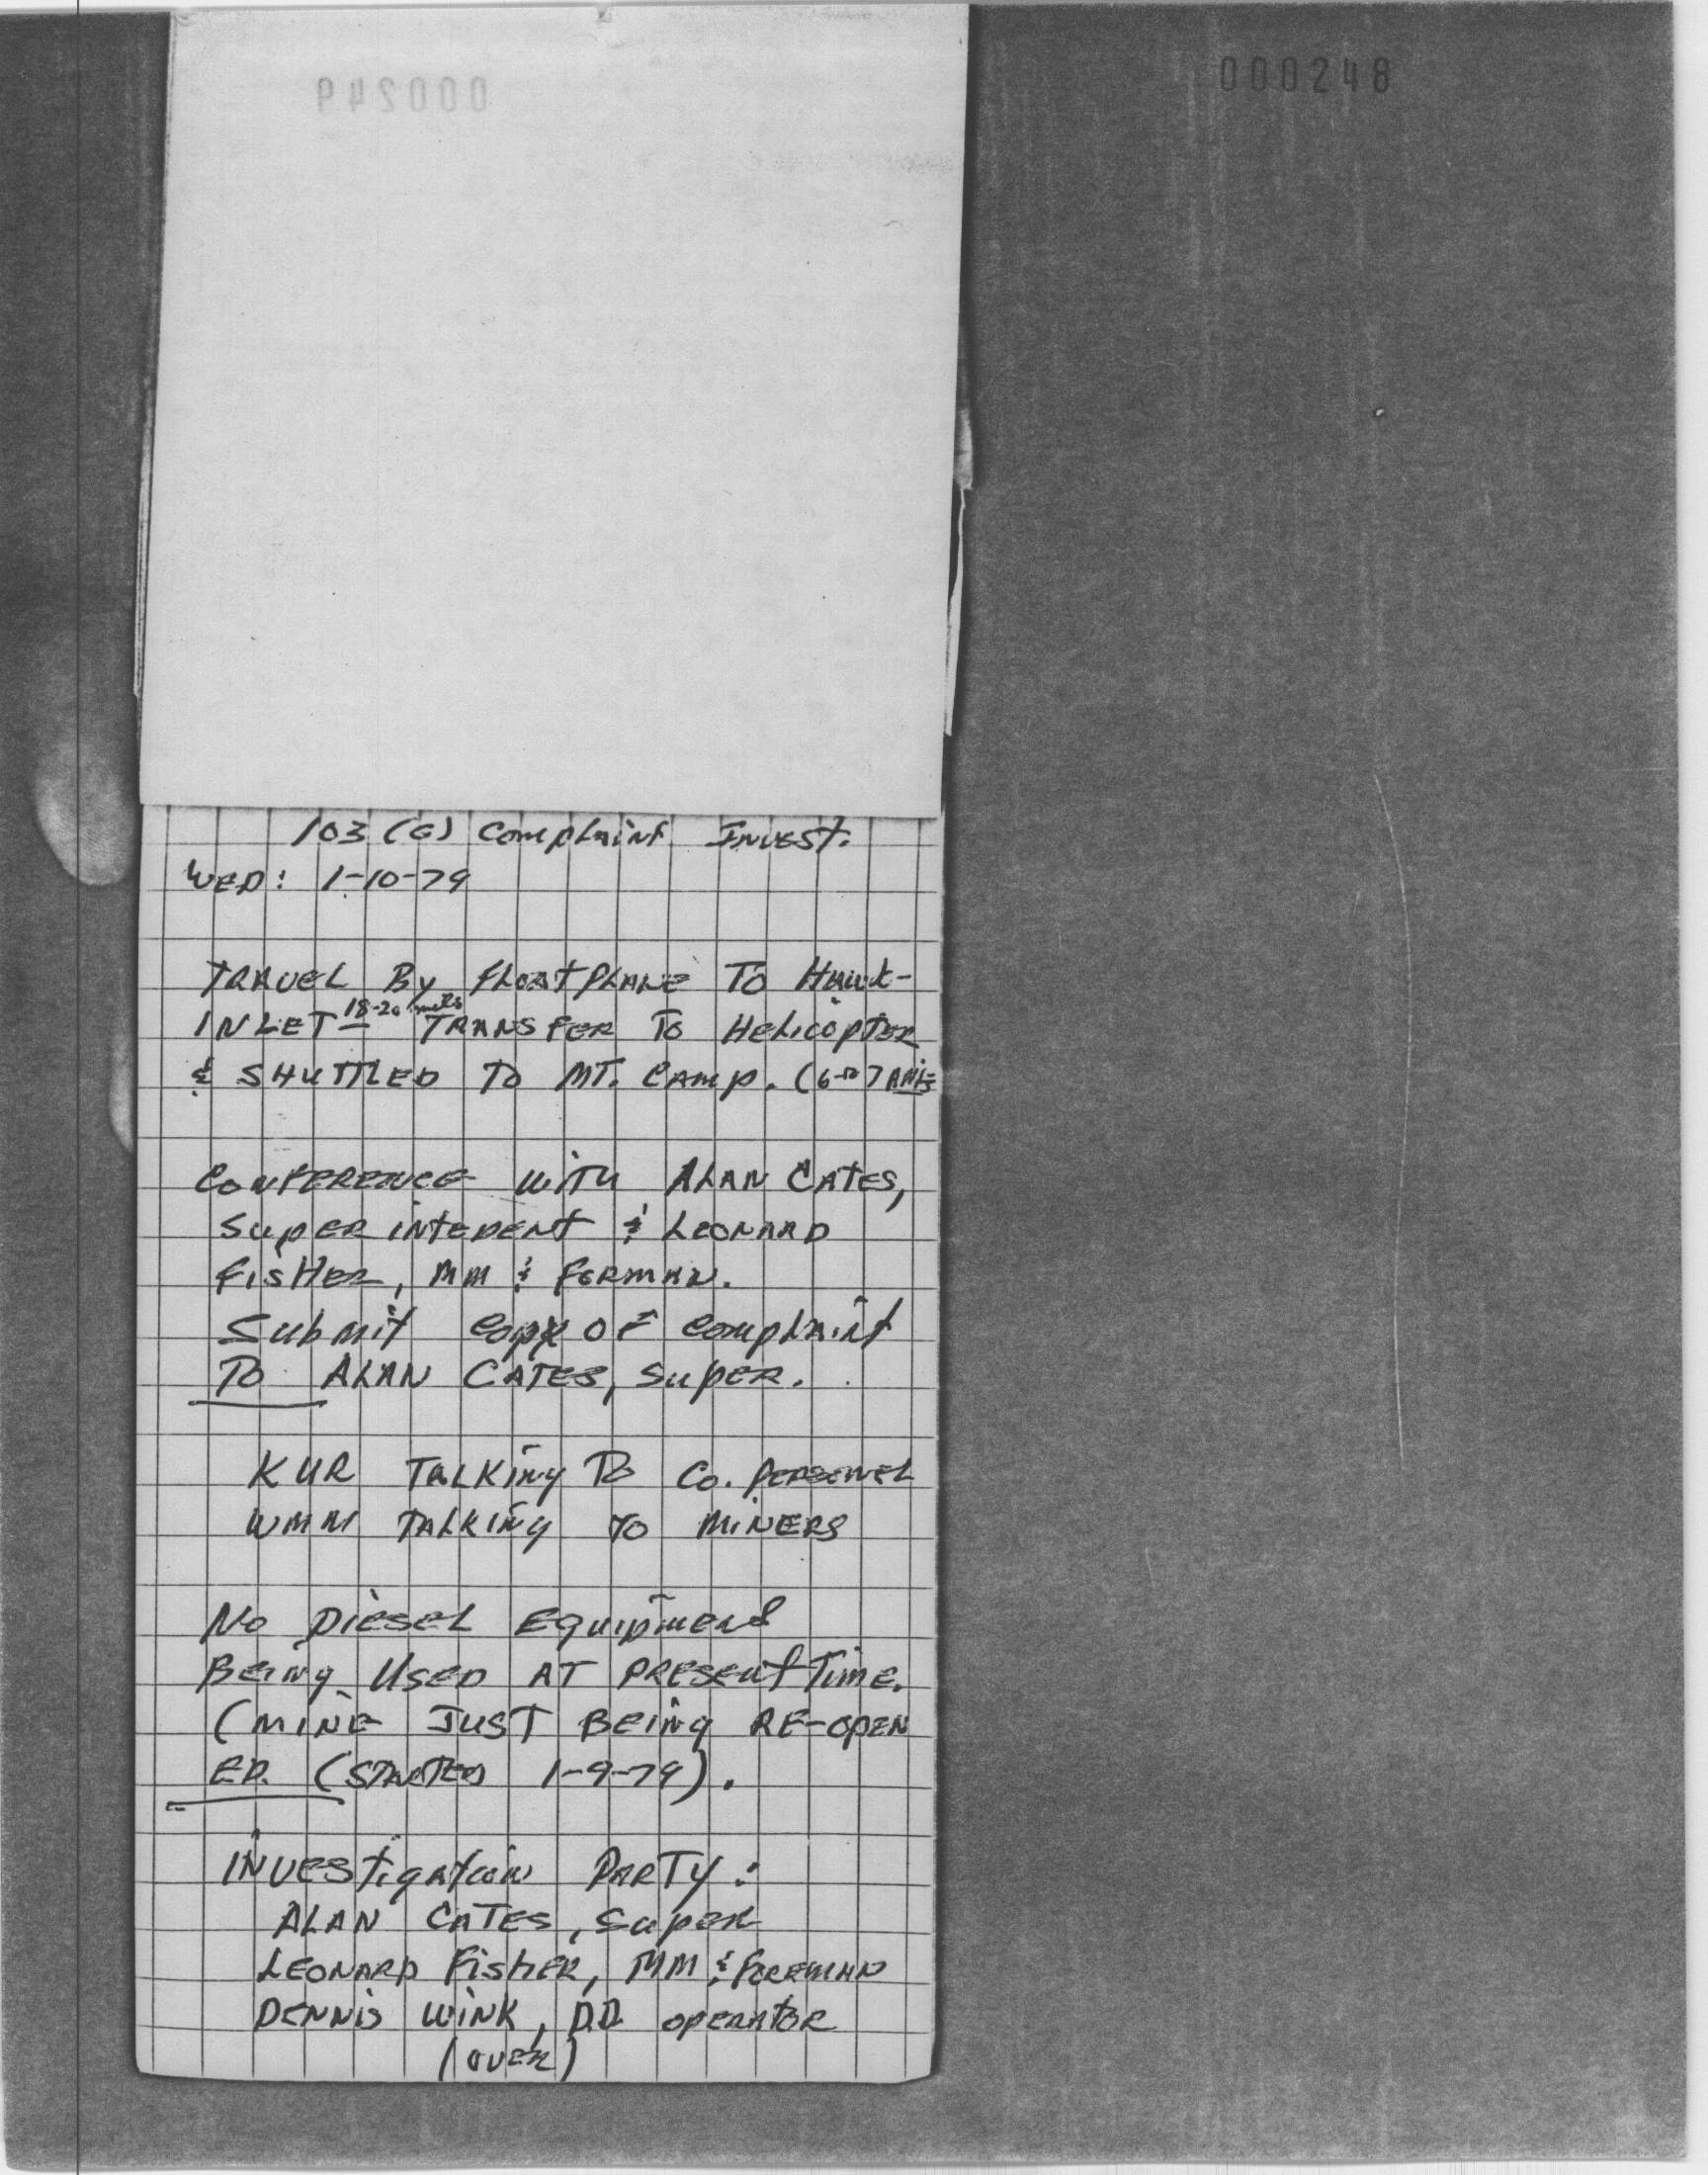 000248
000249
103 (G) Complaint Invest.
WED: 1-10-79
TRAVEL By FLOATPLANE TO HAWK-
INLET 18-20 miles TRANSFER TO HELICOPTER
& SHUTTLED TO MT. CAMP. (6 to 7
CONFERENCE WITH ALAN CATES,
SUPERINTEDENT & LEONARD
FISHER, MM & FORMAN.
Submit copy OF complaint
TO ALAN CATES, SUPER.
KUR TALKING TO Co. PERSONNEL
WMM TALKING TO MINERS
No DIESEL Equipment
Being USED AT PRESENT TIME.
(MINE JUST BEING RE-OPEN
ED. (STARTED 1-9-79).
INVESTigation PARTY:
ALAN CATES, Super
LEONARD FISHER, MM & FOREMAN
DENNIS WINK, D.D. OPERATOR
(OVER)